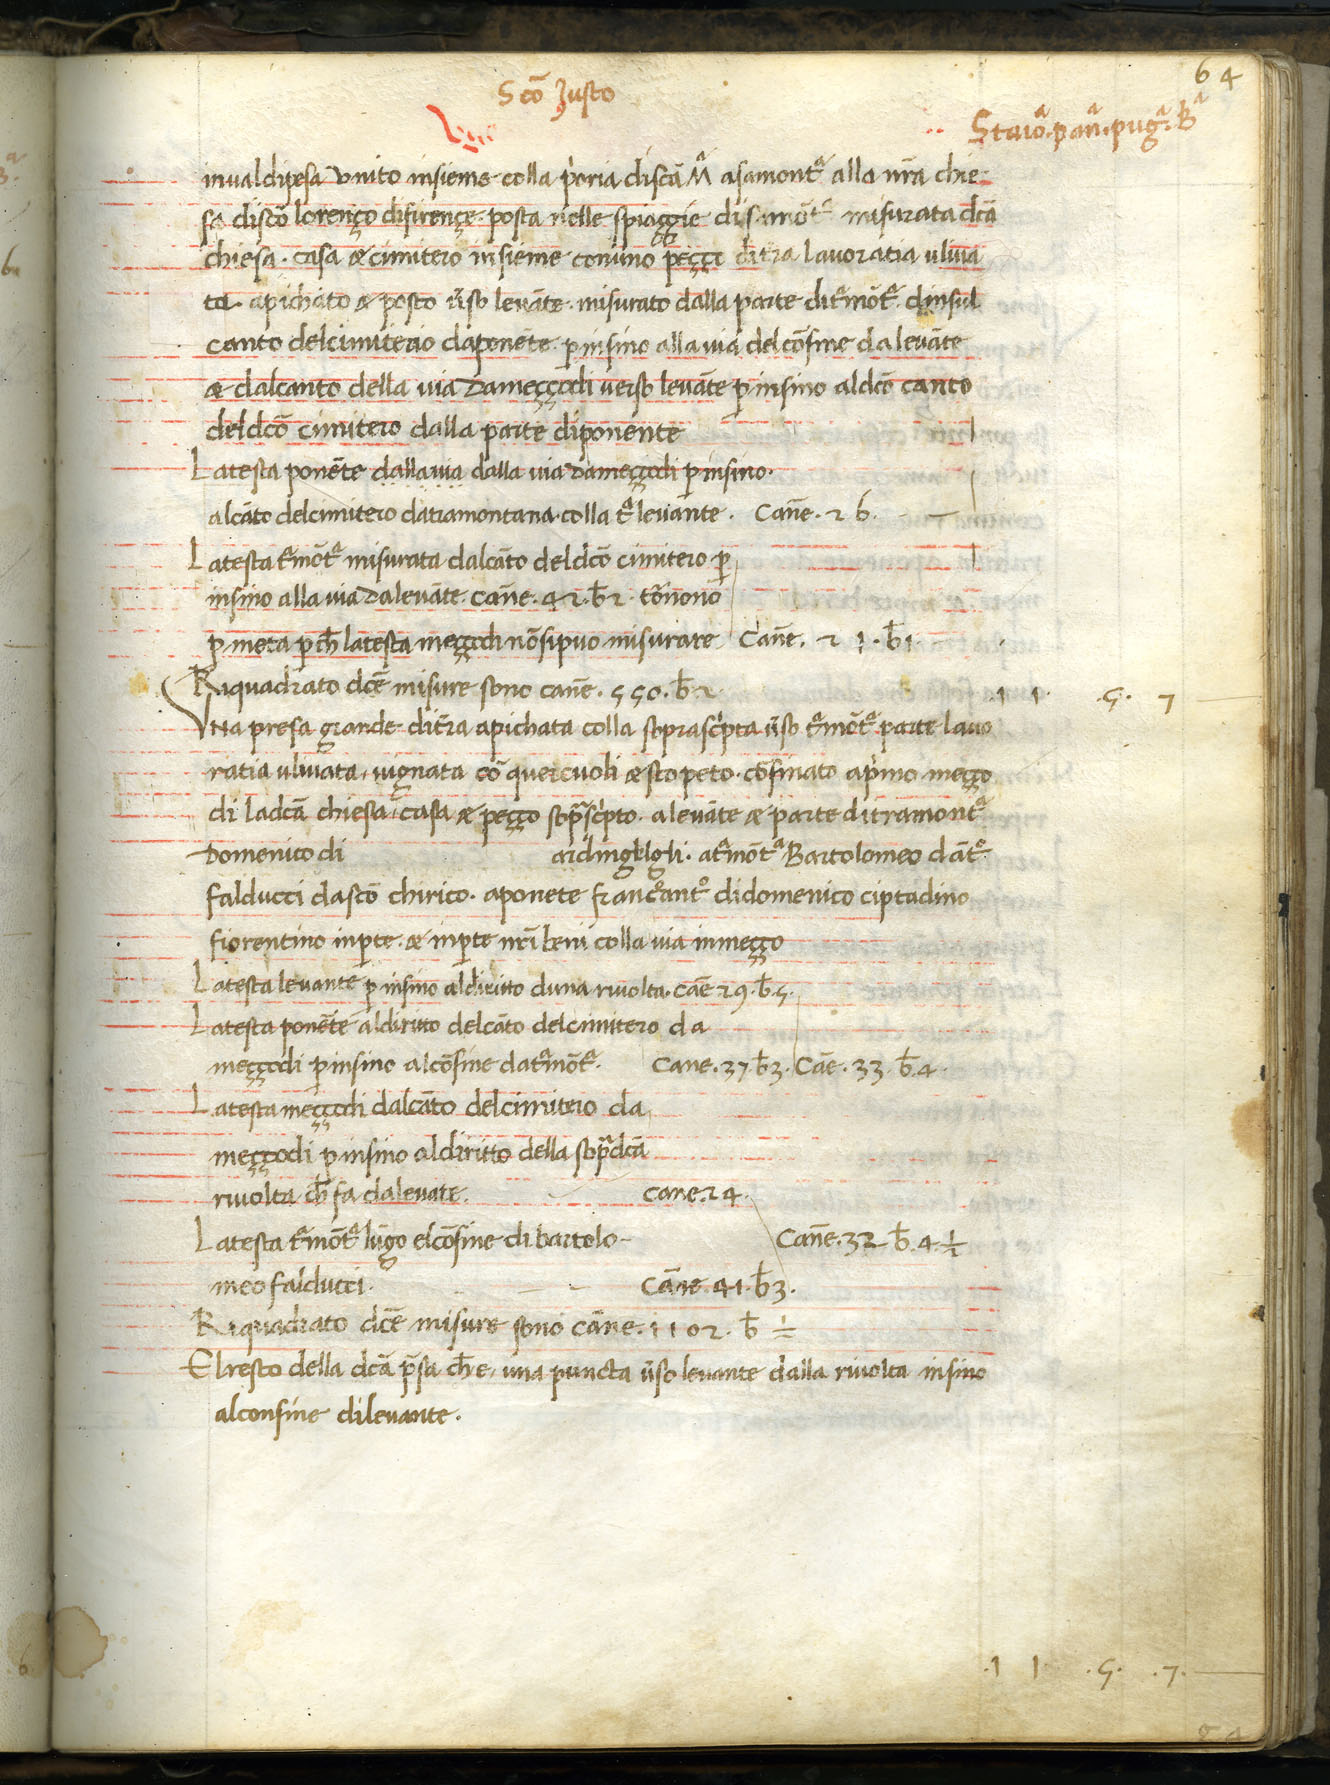 64
Scō Justo
Staioᵃ. panᵃ. pugᵃ. Bᵃ
invaldipesa Unito insieme colla p'oria discā Mᵃ asamontᵃ alla nr̄a chie-
sa discō lorenço difirençe. posta nelle spiaggie dis. misurata dcā
chiesa. casa & cimitero insieme conuno peçço ditr̄a lauoratia uliuia
ta apichato & posto ūso leuāte. misurato dalla parte ditᵃmōtᵃ
canto delcimiterio daponēte. p insino alla uia delcōfine daleuāte
& dalcanto della uia dameççodi verso leuāte p insino aldcō canto
deldcō cimitero dalla parte diponente
Latesta ponēte dallauia dalla uia dameççodi p insino.
alcāto delcimitero datramontana. colla tᵃ leuante. Can̄e. 26.
Latesta tᵃmōtᵃ misurata dalcāto deldcō cimitero p
insino alla uia daleuāte. can̄e. 42. b̄ 2. tōnonō
p meta pch̄ latesta meççodi nōsipuo misurare Can̄e. 21. b̄ 1
Riquadrato dcē misure sono can̄e. 550. b̄ 2 .11. .5. 7
Una presa grande ditr̄a apichata colla soprascr̄ipta ūso tᵃmōtᵃ parte lauo
ratia uliuata, uignata cō quercuoli & scopeto. cōfinato ap'imo meçço
di ladcā chiesa, casa & peçço soprascr̄ipto. aleuāte & parte ditramontᵃ
Domenico di ardinghelgli. atᵃmōtᵃ Bartolomeo dātᵒ
falducci dascō chirico. aponete francᵒantᵒ didomenico ciptadino
fiorentino inp̄te. & inp̄te nr̄i beni colla uia inmeçço
Latesta leuante p insino aldiritto duna riuolta. cāe 29. b̄. 5.
Latesta ponēte aldiritto delcāto delcimitero da
meççodi p insino alcōfine datᵃmōtᵃ. Cane. 37 b̄3. Cāe. 33. b̄. 4.
Latesta meççodi dalcāto delcimitero da
meççodi p insino aldiritto della sopᵃdcā
riuolta ch̄ fa daleuate. cane. 24.
Latesta tᵃmōtᵃ lūgo elcōfine di bartolo- Can̄e. 32 b̄. 4. ½
meo falducci. Cāne. 41. b̄3.
Riquadrato dcē misure sono cāne. 1102. b̄ ½
Elresto della dcā p̄sa ch̄e, una puncta ūso leuante dalla riuolta insino
alconfine dileuante.
.11. .5. .7.